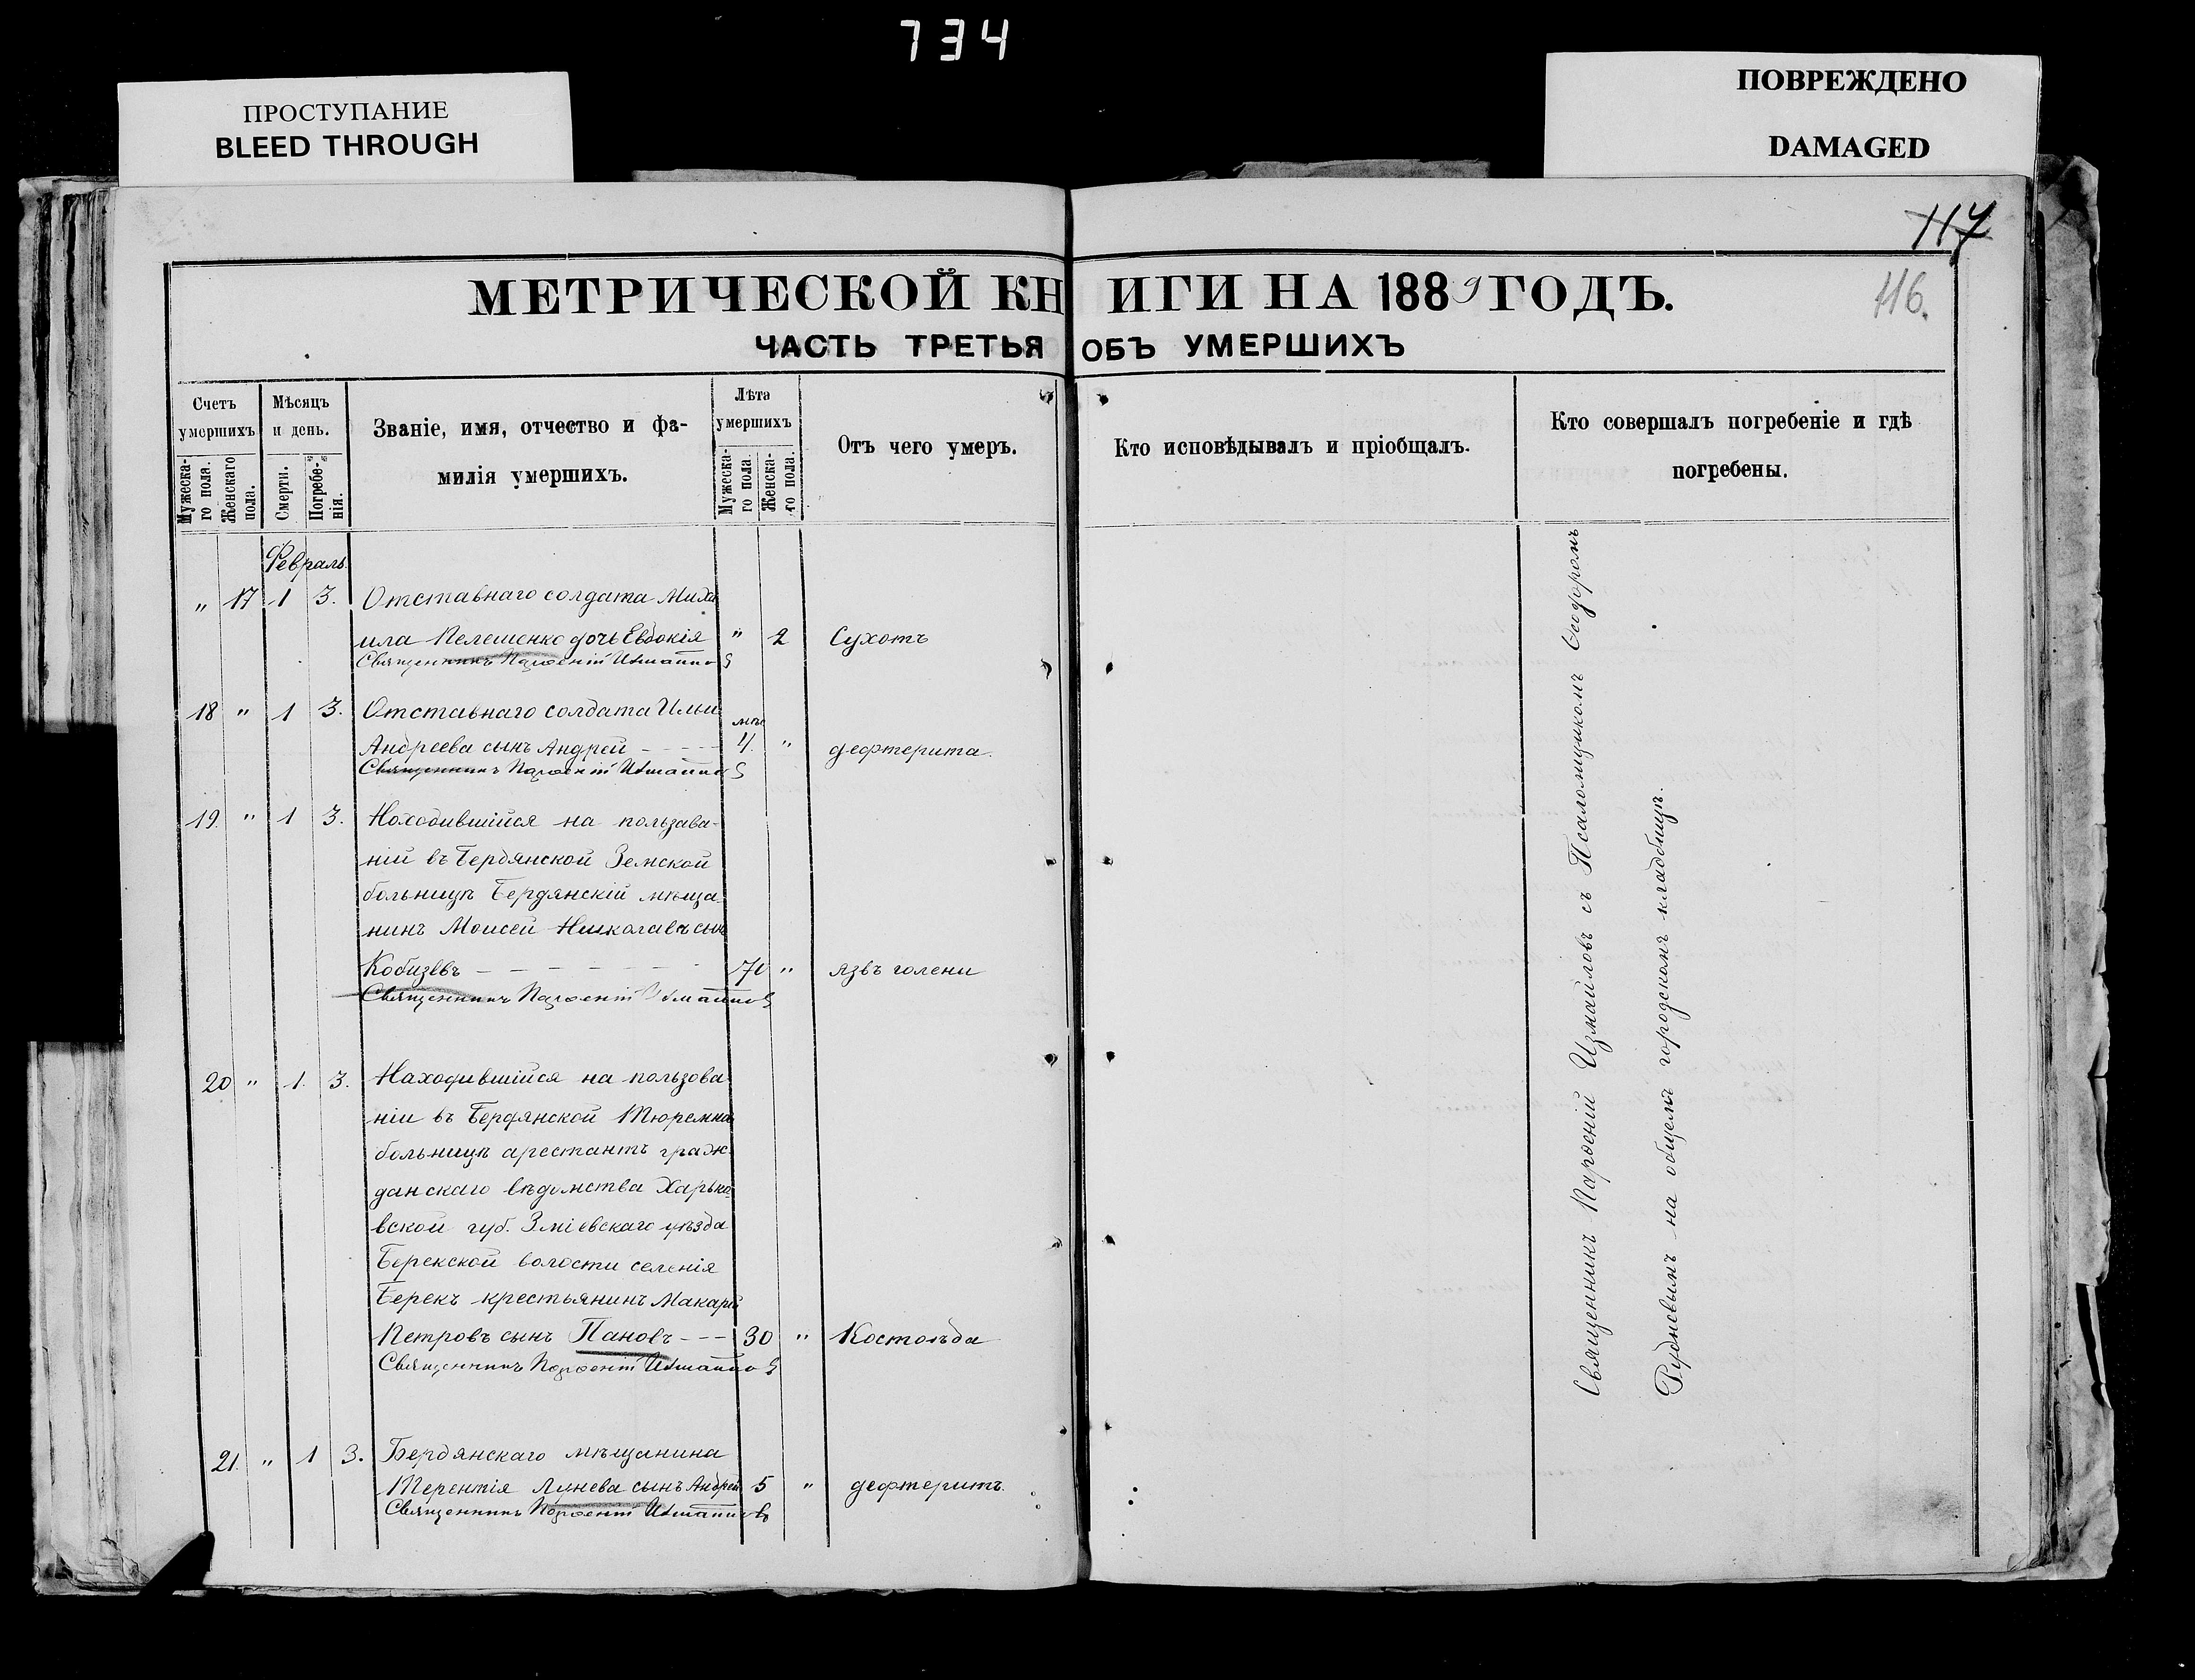 734
ПРОСТУПАНИЕ
BLEED THROUGH
ПОВРЕЖДЕНО
DAMAGED
117
116.
МЕТРИЧЕСКОЙ КНИГИ НА 1889 ГОДЪ.
ЧАСТЬ ТРЕТЬЯ ОБЪ УМЕРШИХЪ
Счетъ умершихъ
Мужескаго пола.
Женскаго пола.
Мѣсяцъ и день.
Смерти.
Погребенія.
Званіе, имя, отчество и фамилія умершихъ.
Лѣта умершихъ
Мужескаго пола.
Женскаго пола.
Отъ чего умеръ.
Кто исповѣдывалъ и пріобщалъ.
Кто совершалъ погребеніе и гдѣ погребены.
Февраль
„ 17 1 3. Отставнаго солдата Миха
ила Пелешенко дочь Евдокія " 2 Сухотъ
Священникъ Парѳеній Измаиловъ
18 " 1 3. Отставнаго солдата Ильи мѣ
Андреева сынъ Андрей - - - - 4. " дефтерита.
Священникъ Парѳеній Измаиловъ
19. " 1 3. Находившійся на пользава-
ній въ Бердянской Земской
больницѣ Бердянскій мѣща-
нинъ Моисей Николаевъ сынъ
Кобизевъ - - - - - - 70 " язвъ голени
Священникъ Парѳеній Измаиловъ
20 " 1. 3. Находившійся на пользова
ніи въ Бердянской Тюремной
больницѣ арестантъ граж
данскаго вѣдомства Харько
вской губ. Зміевскаго уѣзда
Берекской волости селенія
Берекъ крестьянинъ Макарій
Петровъ сынъ Пановъ - - - 30 " Костоѣда
Священникъ Парѳеній Измаиловъ
21. " 1 3. Бердянскаго мѣщанина
Терентія Лунева сынъ Андрей 5 " дефтеритъ.
Священникъ Парѳеній Измаиловъ
Священникъ Парѳеній Измаиловъ съ Псаломщикомъ Ѳедоромъ
Рудневымъ на общемъ городскомъ кладбищѣ.